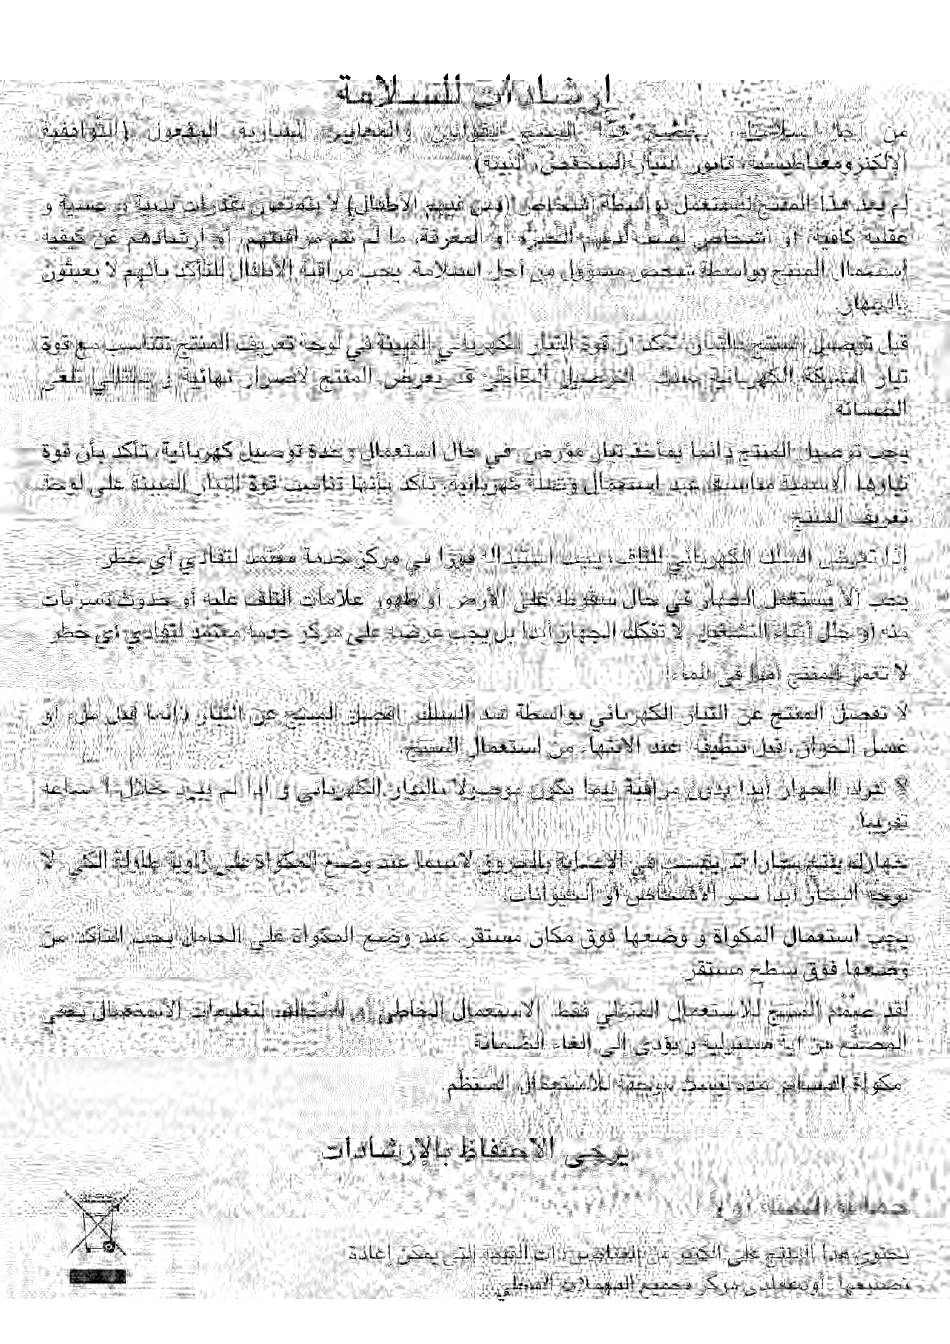 إرشادات للسلامة
من أجل سلامتك، يخضع هذا المنتج للقوانين والمعايير السارية المفعول (التوافقية
الإلكترومغناطيسية، قانون التيار المنخفض، البيئة).
لم يعد هذا المنتج ليستعمل بواسطة أشخاص (ومن فيهم الأطفال) لا يتمتعون بقدرات بدنية و حسية و
عقلية كافية، أو أشخاص ليست لديهم الخبرة أو المعرفة، ما لم تتم مراقبتهم، أو ارشادهم عن كيفية
إستعمال المنتج بواسطة شخص مسؤول من أجل السلامة. يجب مراقبة الأطفال للتأكد بأنهم لا يعبثون
بالجهاز.
قبل توصيل المنتج بالتيار، تأكد أن قوة التيار الكهربائي المبينة في لوحة تعريف المنتج تتناسب مع قوة
تيار الشبكة الكهربائية عندك. التوصيل الخاطئ قد يُعرض المنتج لأضرار نهائية و بالتالي تلغى
الضمانة.
يجب توصيل المنتج دائما بمأخذ تيار مؤرض. في حال استعمال وحدة توصيل كهربائية، تأكد بأن قوة
تيارها الاسمية مناسبة. عند استعمال وصلة كهربائية، تأكد بأنها تناسب قوة التيار المبينة على لوحة
تعريف المنتج.
إذا تعرض السلك الكهربائي للتلف، يجب استبداله فورًا في مركز خدمة معتمد لتفادي أي خطر.
يجب ألا يُستعمل الجهاز في حال سقوطه على الأرض أو ظهور علامات التلف عليه أو حدوث تسربات
منه أو خلل أثناء التشغيل. لا تفكك الجهاز أبدا بل يجب عرضه على مركز خدمة معتمد لتفادي أي خطر.
لا تغمر المنتج أبدا في الماء!
لا تفصل المنتج عن التيار الكهربائي بواسطة شد السلك. إفصل المنتج عن التيار دائما قبل ملء أو
غسل الخزان، قبل تنظيفه، عند الانتهاء من استعمال المنتج.
لا تترك الجهاز أبدا بدون مراقبة بينما يكون موصولا بالتيار الكهربائي و إذا لم يبرد خلال 1 ساعة
تقريبا.
جهازك ينتج بخارا قد يتسبب في الإصابة بالحروق لا سيما عند وضع المكواة على زاوية طاولة الكي. لا
توجه البخار أبدا نحو الأشخاص أو الحيوانات.
يجب استعمال المكواة و وضعها فوق مكان مستقر. عند وضع المكواة على الحامل يجب التأكد من
وضعها فوق سطح مستقر.
لقد صُمّم المنتج للاستعمال المنزلي فقط. الاستعمال الخاطئ أو المُخالف لتعليمات الاستعمال يُعفي
المُصنّع من أية مسئولية و يؤدي إلى الغاء الضمانة.
مكواة البخار هذه ليست موجهة للاستعمال المنتظم.
يرجى الاحتفاظ بالإرشادات
حماية البيئة أولا
يحتوي هذا المنتج على الكثير من العناصر ذات القيمة التي يمكن إعادة
تصنيعها. أودعه لدى مركز تجميع المهملات المحلي.